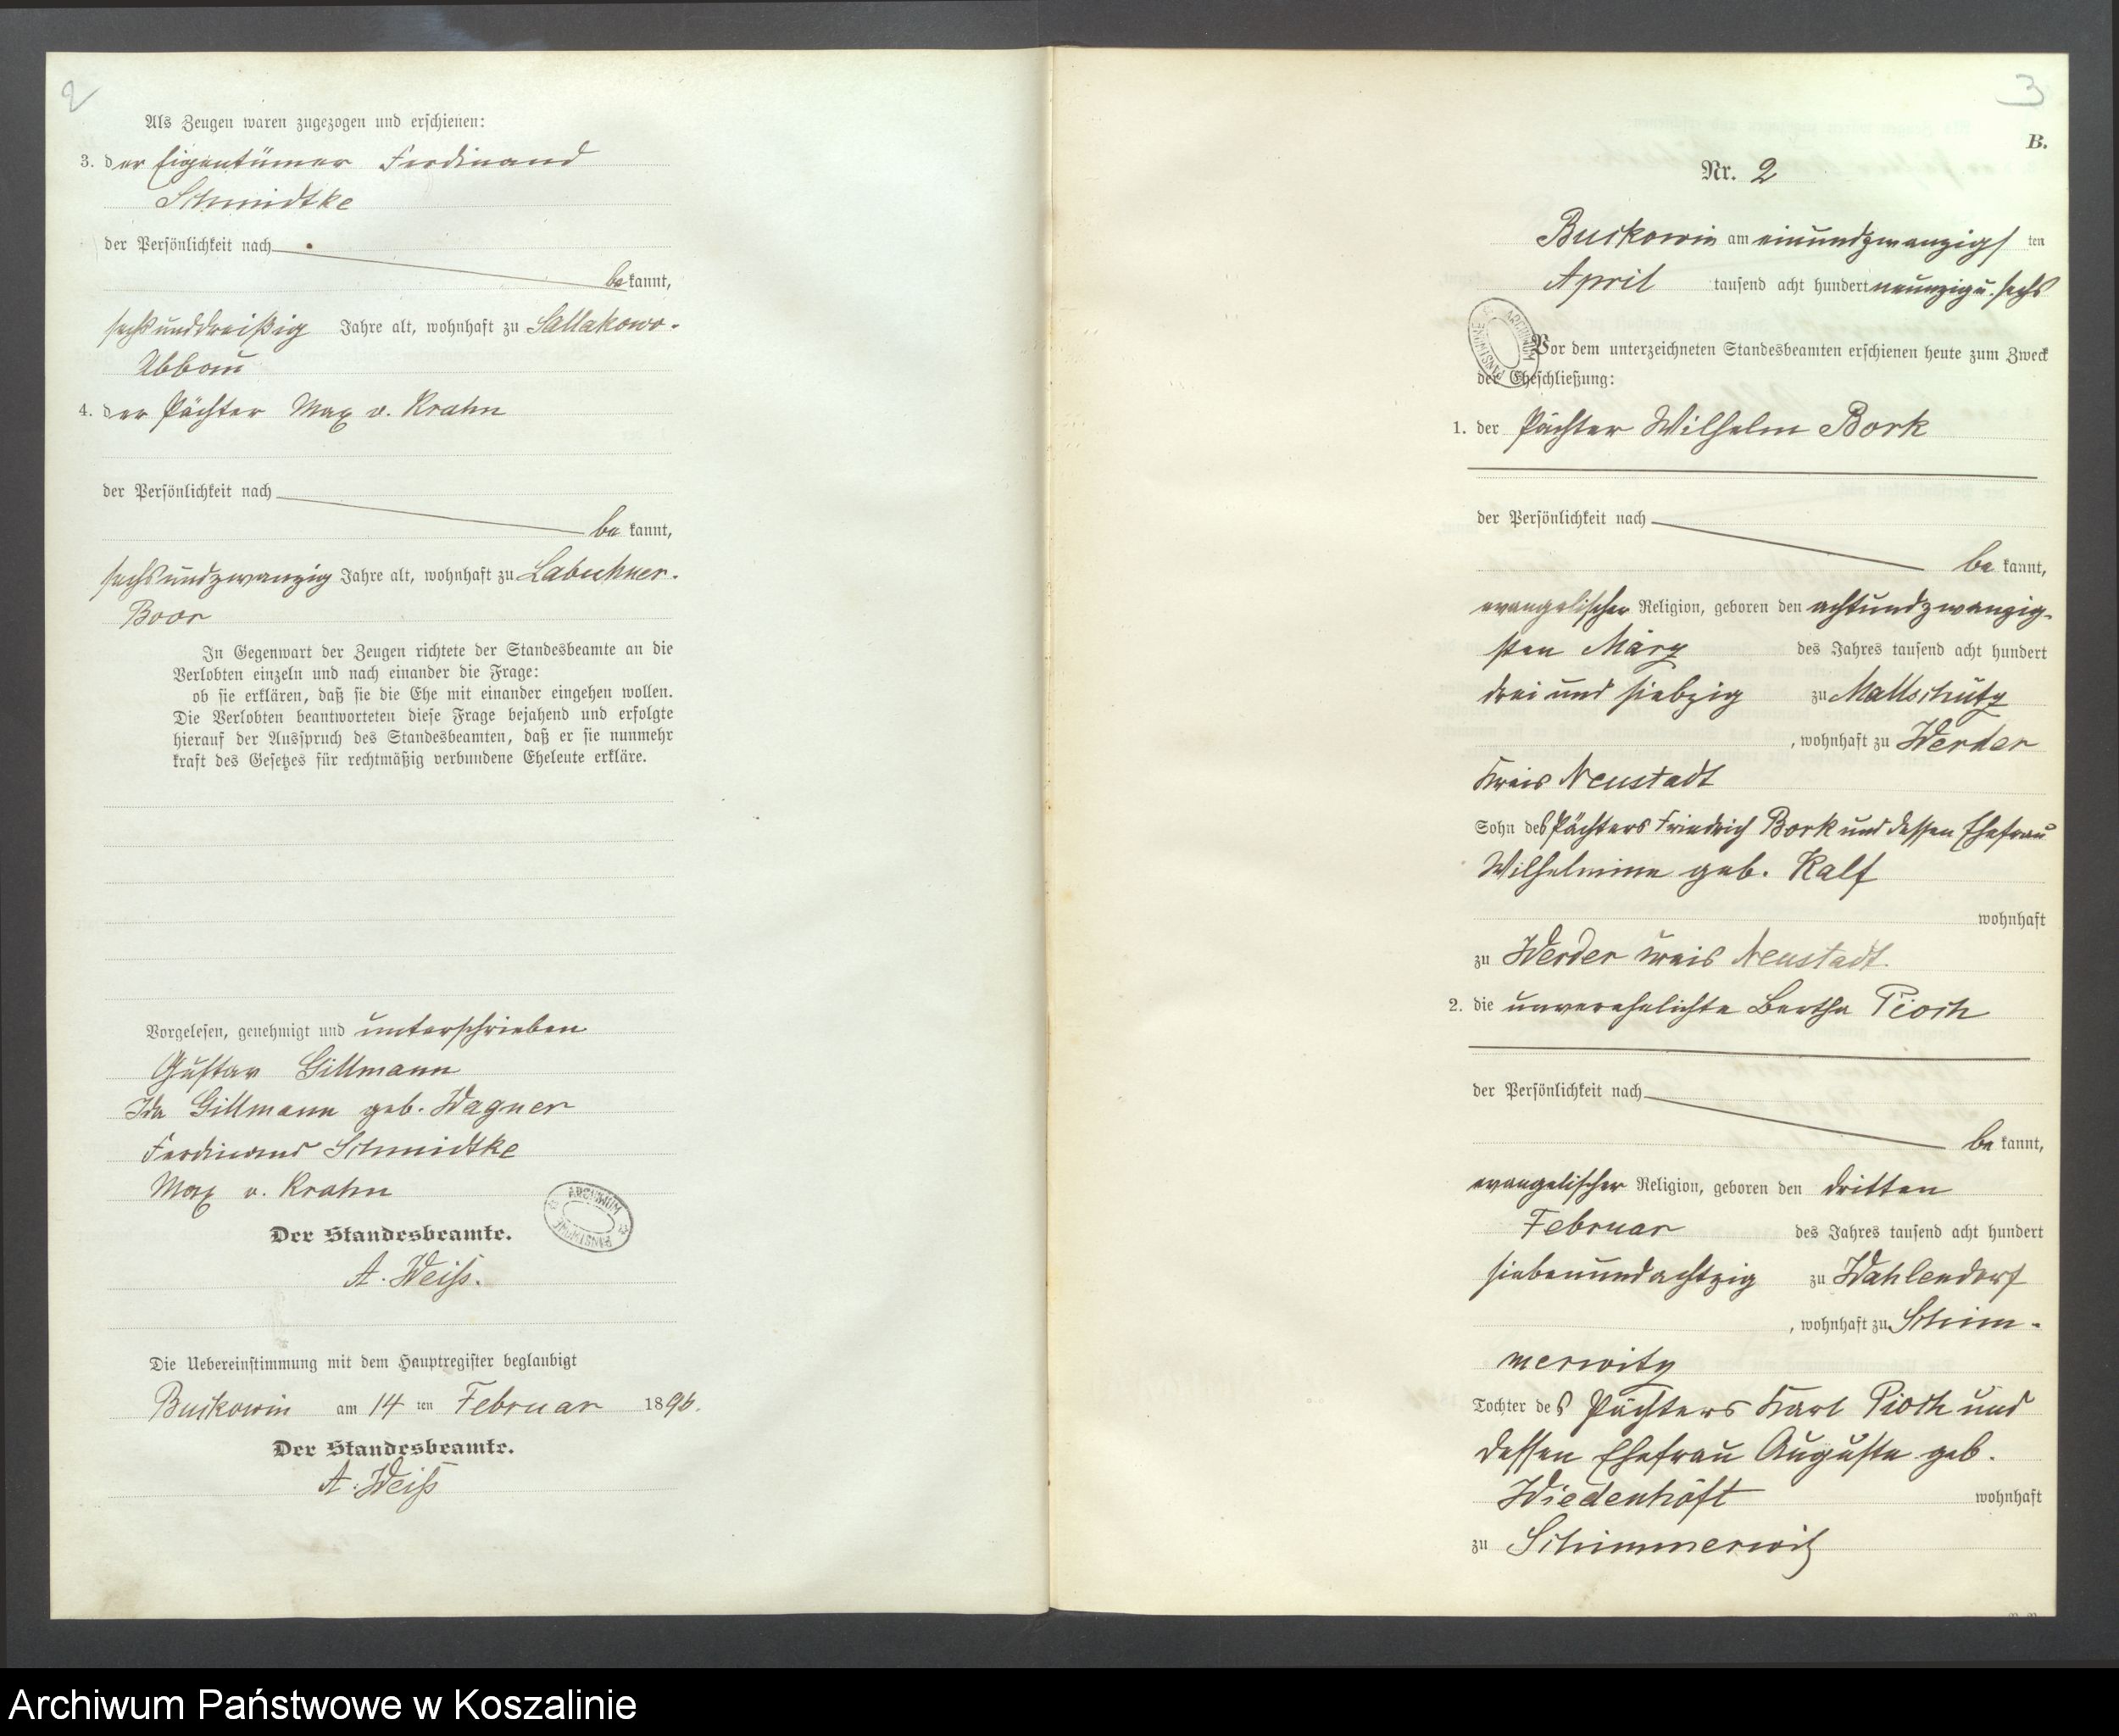 2
Als Zeugen waren zugezogen und erschienen:
3. der Eigentümer Ferdinand
Schmidtke
der Persönlichkeit nach
bekannt,
sechsunddreißig Jahre alt, wohnhaft zu Sallakowo-
Abbau
4. der Pächter Max v. Krahn
der Persönlichkeit nach
be kannt,
sechsundzwanzig Jahre alt, wohnhaft zu Labuhner-
Boor
In Gegenwart der Zeugen richtete der Standesbeamte an die
Verlobten einzeln und nach einander die Frage:
ob sie erklären, daß sie die Ehe mit einander eingehen wollen.
Die Verlobten beantworteten diese Frage bejahend und erfolgte
hierauf der Ausspruch des Standesbeamten, daß er sie nunmehr
kraft des Gesetzes für rechtmäßig verbundene Eheleute erkläre.
Vorgelesen, genehmigt und unterschrieben
Gustav Gillmann
Ida Gillmann geb. Wagner
Ferdinand Schmidtke
Max v. Krahn
ARCHIWUM PAŃSTWOWE
Der Standesbeamte.
A. Weiß.
Die Uebereinstimmung mit dem Hauptregister beglaubigt
Buckowin am 14 ten Februar 1896.
Der Standesbeamte.
A. Weiß
3
B.
Nr. 2
Buckowin am einundzwanzigs ten
April tausend acht hundert neunzig u. sechs
ARCHIWUM PAŃSTWOWE
Vor dem unterzeichneten Standesbeamten erschienen heute zum Zweck
der Eheschließung:
1. der Pächter Wilhelm Bork
der Persönlichkeit nach
be kannt,
evangelischer Religion, geboren den achtundzwanzig-
sten März des Jahres tausend acht hundert
drei und siebzig zu Mallschütz
, wohnhaft zu Werder
Kreis Neustadt
Sohn des Pächters Friedrich Bork und dessen Ehefrau
Wilhelmine geb. Kalf
wohnhaft
zu Werder Kreis Neustadt.
2. die unverehelichte Bertha Pioch
der Persönlichkeit nach
be kannt,
evangelischer Religion, geboren den dritten
Februar des Jahres tausend acht hundert
siebenundachtzig zu Wahlendorf
, wohnhaft zu Schim-
merwitz
Tochter des Pächters Karl Pioch und
dessen Ehefrau Auguste geb.
Wiedenhöft wohnhaft
zu Schimmerwitz
Archiwum Państwowe w Koszalinie